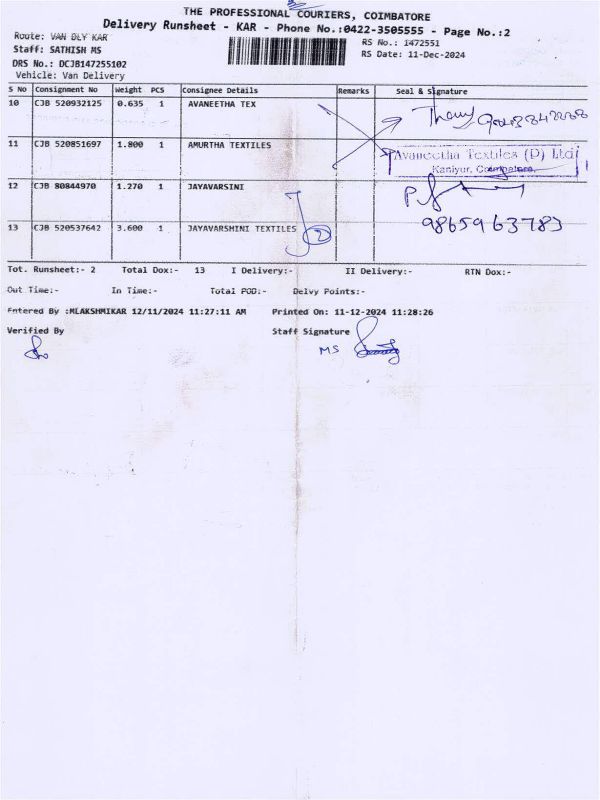 THE PROFESSIONAL COURIERS, COIMBATORE
Delivery Runsheet - KAR - Phone No.:0422-3505555 - Page No.:2
Route: VAN DLY KAR
RS No.: 1472551
Staff: SATHISH MS
RS Date: 11-Dec-2024
DRS No.: DCJB147255102
Vehicle: Van Delivery
S No Consignment No Weight PCS Consignee Details Remarks Seal & Signature
10 CJB 520932125 0.635 1 AVANEETHA TEX
11 CJB 520851697 1.800 1 AMURTHA TEXTILES
Avaneetha Textiles (P) Ltd
Kaniyur, Coimbatore.
12 CJB 80844970 1.270 1 JAYAVARSINI
13 CJB 520537642 3.600 1 JAYAVARSHINI TEXTILES 2
9865963783
Tot. Runsheet:- 2 Total Dox:- 13 I Delivery:- II Delivery:- RTN Dox:-
Out Time:- In Time:- Total POD:- Delvy Points:-
Entered By :MLAKSHMIKAR 12/11/2024 11:27:11 AM Printed On: 11-12-2024 11:28:26
Verified By Staff Signature
MS